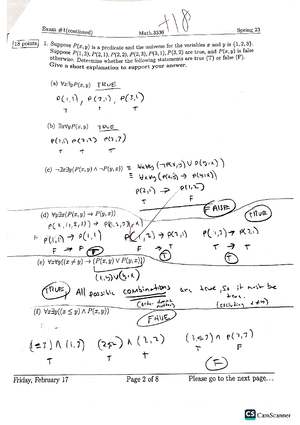 +18
Exam #1(continued) Math 3336 Spring 23
[18 points] 1. Suppose P(x, y) is a predicate and the universe for the variables x and y is {1, 2, 3}.
Suppose P(1,3), P(2,1), P(2,2), P(2,3), P(3,1), P(3,2) are true, and P(x, y) is false
otherwise. Determine whether the following statements are true (T) or false (F).
Give a short explanation to support your answer.
(a) ∀x∃yP(x, y) TRUE
(b) ∃x∀yP(x, y) TRUE
T T T
(c) ¬∃x∃y(P(x, y) ∧ ¬P(y, x)) ≡ ∀x∀y (¬P(x,y) ∨ P(y,x))
≡ ∀x∀y (P(x,y) → P(y,x))
P(2,1) → P(1,2)
T F
FALSE
(d) ∀y∃x(P(x, y) → P(y, x)) TRUE
(e) ∀x∀y((x ≠ y) → (P(x, y) ∨ P(y, x)))
TRUE, All possible combinations are true, so it must be
true.
(f) ∀x∃y((x ≤ y) ∧ P(x, y))
FALSE
T F T T T F
F
Friday, February 17 Page 2 of 8 Please go to the next page...
CS CamScanner